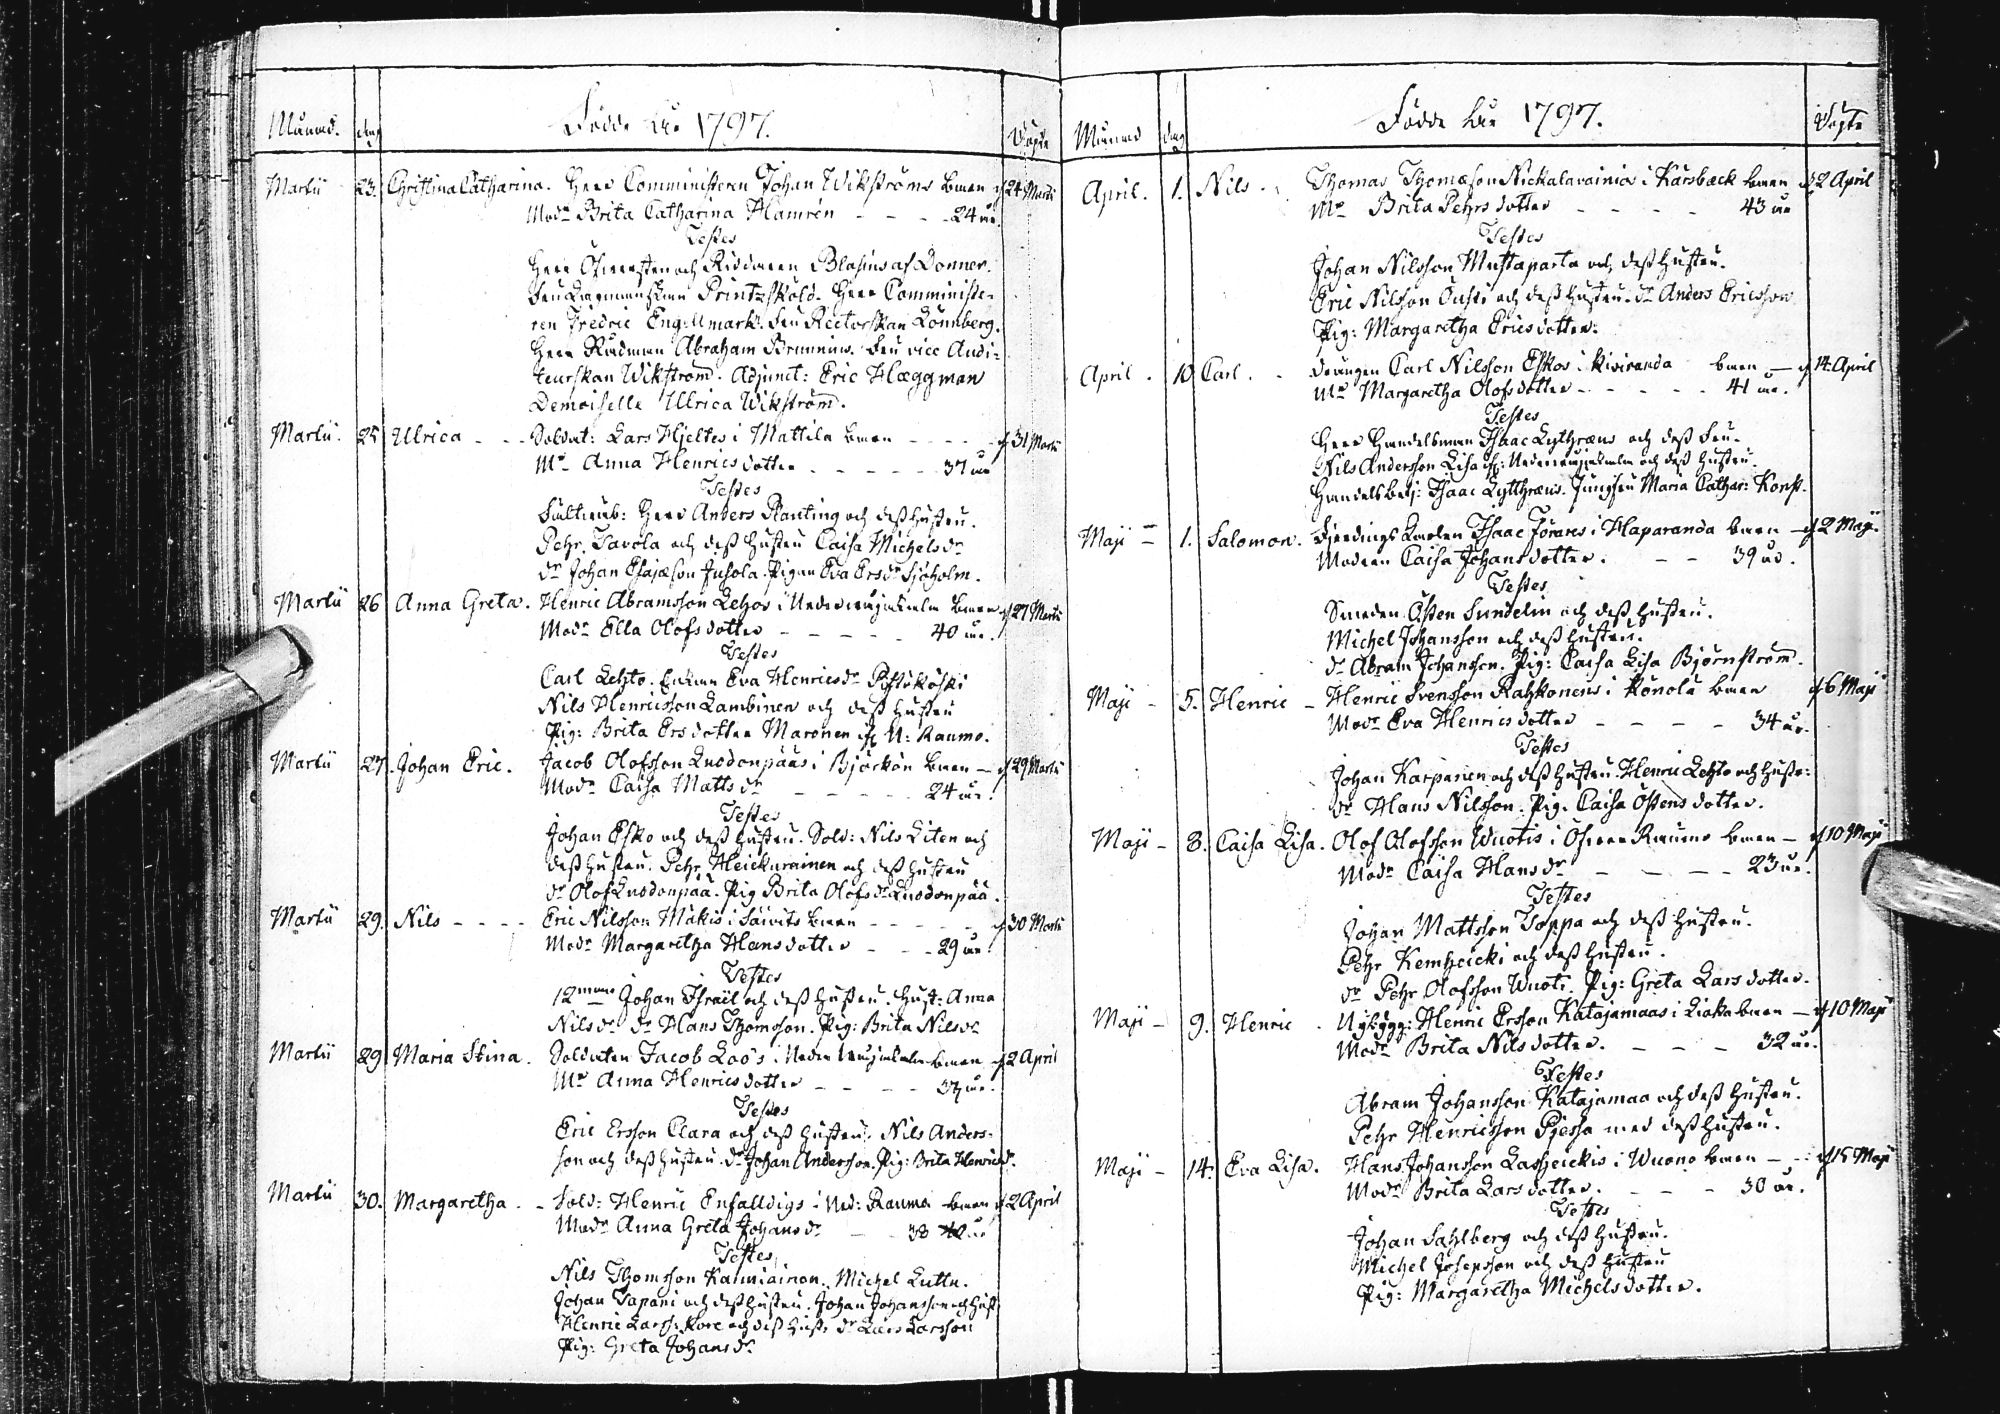 Månad. dag Födde Åhr 1797. Döpte
Martii 23. Christina Catharina. Herr Comministern Johan Wikströms barn d 24 Martii
Modr Brita Catharina Hamrén - - - 24 år.
Testes
Herr Öfwersten och Riddaren Blasius af Donner.
Fru Lagmanskan Printzsköld. Herr Comministe-
ren Fredric Engellmark. Fru Rectorskan Lönnberg.
Herr Rådman Abraham Brunnius. Fru vice Audi-
teurskan Wikström. Adjunct: Eric Hæggman
Demoiselle Ulrica Wikström.
Martii. 25 Ulrica - - - Soldat: Lars Hjeltes i Mattila barn - - - - d 31 Martii
Mr Anna Henricsdotter - - - - - 37 år
Testes
Fältwäb: Herr Anders Planting och dess hustru.
Pehr Tavola och dess hustru Caisa Michelsdr
dr Johan Esajæson Juhola. Pigan Eva Ersdr Sjöholm.
Martii 26 Anna Greta. Henric Abramsson Lehtos i Nedervojakala barn d 27 Martii
Modr Ella Olofsdotter - - - - - 40 år.
Testes
Carl Lehto. Enkan Eva Henricsdr
Nils Henricsson Lambinen och dess hustru
Pig: Brita Ersdotter Maronen if. N: Raumo.
Martii 27. Johan Eric. Jacob Olofsson Luodonpääs i Björkön barn - d 29 Martii
Modr Caisa Mattsdr - - - - 24 år.
Testes
Johan Esko och dess hustru. Sold: Nils Liten och
dess hustru. Pehr Heickurainen och dess hustru
dr Olof Luodonpää. Pig Brita Olofsdr Luodonpää.
Martii 29. Nils - - - - Eric Nilsson Mäkis i Säivits barn - - - - - d 30 Martii
Modr Margaretha Hansdotter - - - 29 år.
Testes
12man Johan Israël och dess hustru. Hust: Anna
Nilsdr dr Hans Thomsson. Pig: Brita Nilsdr
Martii 29 Maria Stina. Soldaten Jacob Loo's i Nedervojakala barn d 2 April
Mr Anna Henricsdotter - - - - 37 år.
Testes
Eric Ersson Clara och dess hustru. Nils Anders-
son och dess hustru. dr Johan Andersson. Pig: Brita Henricsd.
Martii 30. Margaretha - - Sold: Henric Enfalldigs i Ned: Raumo barn d 2 April
Modr Anna Greta Johansdr - - 38 år
Testes
Nils Thomsson Kauniainen. Michel Lutta.
Johan Tapani och dess hustru. Johan Johansson och hust
Henric Larss: Kore och dess hustr dr Lars Larsson
Pig: Greta Johansdr
Månad dag Födde Åhr 1797. Döpte
April. 1. Nils - . Thomas Thomæson Nickalavainios i Karsbäck barn d 2 April
Mr Brita Pehrsdotter - - - - 43 år
Testes
Johan Nilsson Mustaparta och dess hustru.
Eric Nilsson Outsi och dess hustru. dr Anders Ericsson
Pig: Margaretha Ericsdotter.
April. 10 Carl. - Drängen Carl Nilsson Eskos i Kiviranda barn - d 14 April
Mr Margaretha Olofsdotter - - - - - 41 år.
Testes
Herr Handelsman Isaac Lythræus och dess Fru.
Nils Andersson Lisa if: Nedervojakala och dess hustru.
Handelsbetj: Isaac Lythræus. Jungfru Maria Cathar: Konst.
Maji - 1. Salomon. Fjerdingskarlen Isaac Törares i Haparanda barn - d 2 Maji
Modren Caisa Johansdotter. - - 39 år.
Testes
Smeden Östen Sundelin och dess hustru.
Michel Johansson och dess hustru.
dr Abram Johansson. Pig: Caisa Lisa Björnström.
Maji - 5. Henric - Henric Svensson Rahkonens i Kônolä barn d 6 Maji
Modr Eva Henricsdotter - - - - 34 år.
Testes
Johan Karpanen och dess hustru. Henric Lehto och hustr:
dr Hans Nilsson. Pig. Caisa Östensdotter.
Maji - 8. Caisa Lisa. Olof Olofsson Wuotis i Öfwer Raumo barn - d 10 Maji
Modr Caisa Hansdr - - - - 23 år.
Testes
Johan Mattsson Toppa och dess hustru.
Pehr Kemheicki och dess hustru.
dr Pehr Olofsson Wuoti. Pig: Greta Larsdotter.
Maji - 9. Henric . Nybygg: Henric Ersson Katajamaas i Liaka barn - d 10 Maji
Modr Brita Nilsdotter. - - - 32 år.
Testes
Abram Johansson Katajamaa och dess hustru.
Pehr Henricsson Pjessa med dess hustru.
Maji - 14. Eva Lisa. Hans Johansson Lassheickis i Wuono barn - - d 15 Maji
Modr Brita Larsdotter. - - - 30 år.
Testes
Johan Sahlberg och dess hustru.
Michel Josepsson och dess hustru
Pig: Margaretha Michelsdotter.